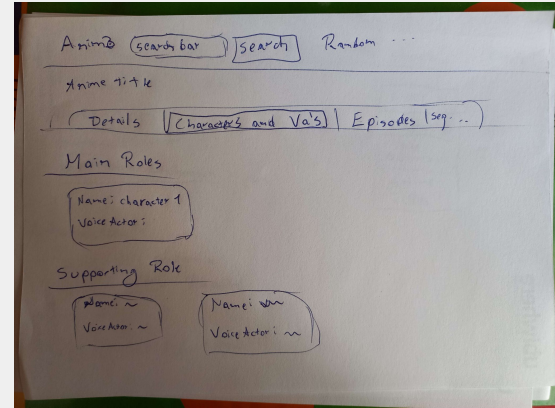 Anime search bar search Random ...
Anime Title
Details Characters and Va's Episodes seq...
Main Roles
Name: character 1
Voice Actor:
Supporting Role
Name: ~ Name: ~
Voice Actor: ~ Voice Actor: ~